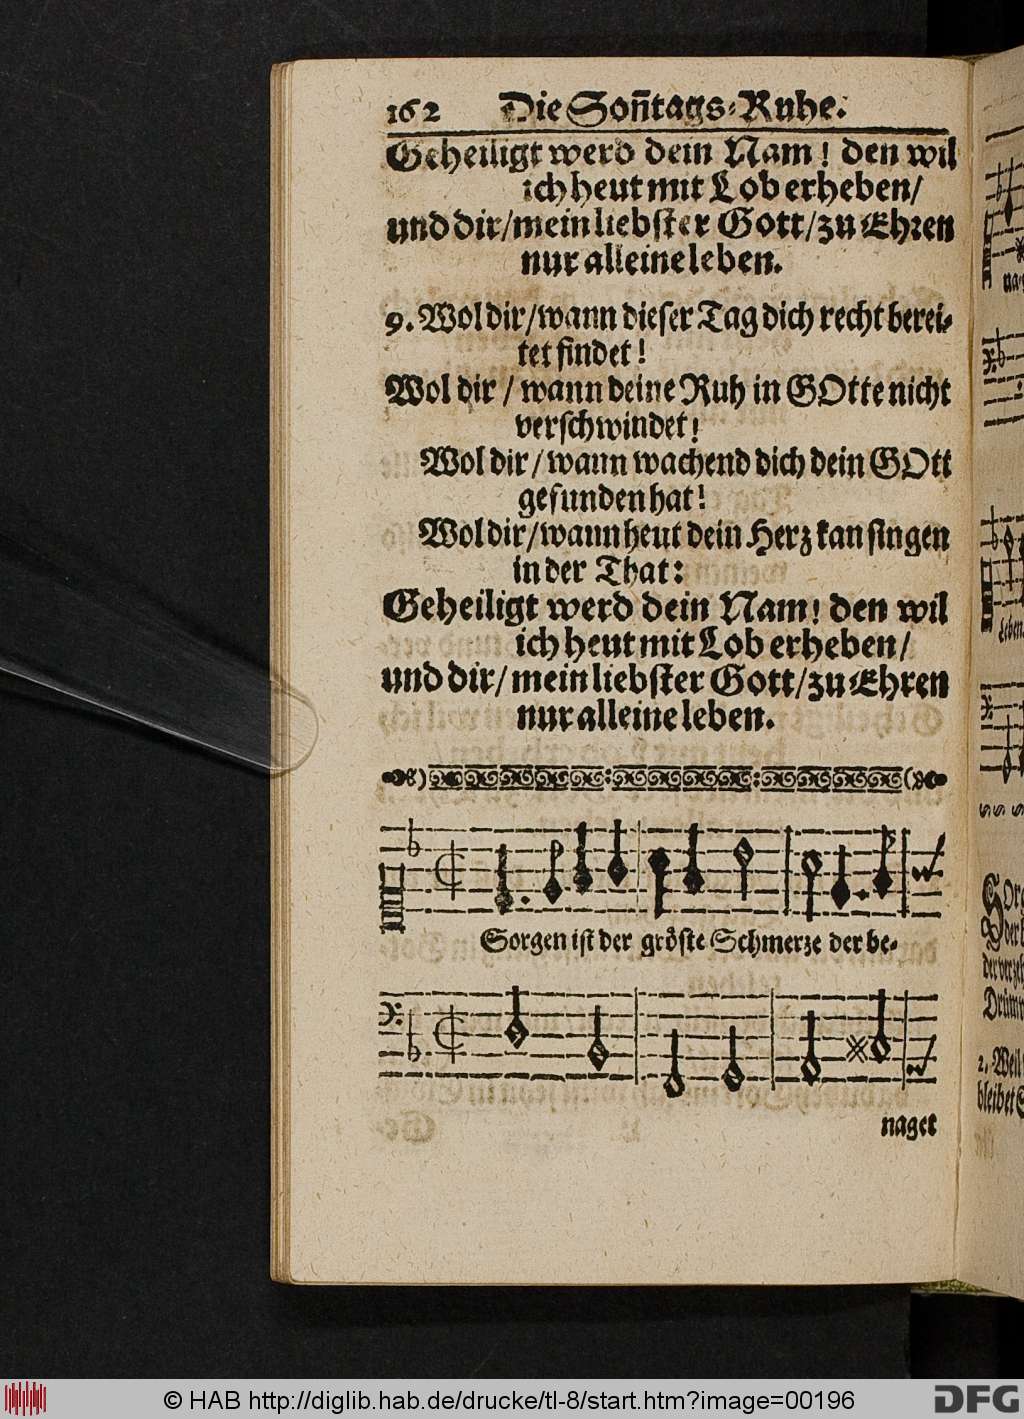 162 Die Soñtags-Ruhe.
Geheiligt werd dein Nam! den wil
ich heut mit Lob erheben/
und dir/mein liebster Gott/zu Ehren
nur alleine leben.
9. Wol dir/wann dieser Tag dich recht berei-
tet findet!
Wol dir / wann deine Ruh in GOtte nicht
verschwindet!
Wol dir / wann wachend dich dein GOtt
gefunden hat!
Wol dir/wann heut dein Herz kan singen
in der That:
Geheiligt werd dein Nam! den wil
ich heut mit Lob erheben/
und dir/mein liebster Gott/zu Ehren
nur alleine leben.
Sorgen ist der gröste Schmerze der be-
naget
© HAB http://diglib.hab.de/drucke/tl-8/start.htm?image=00196
DFG